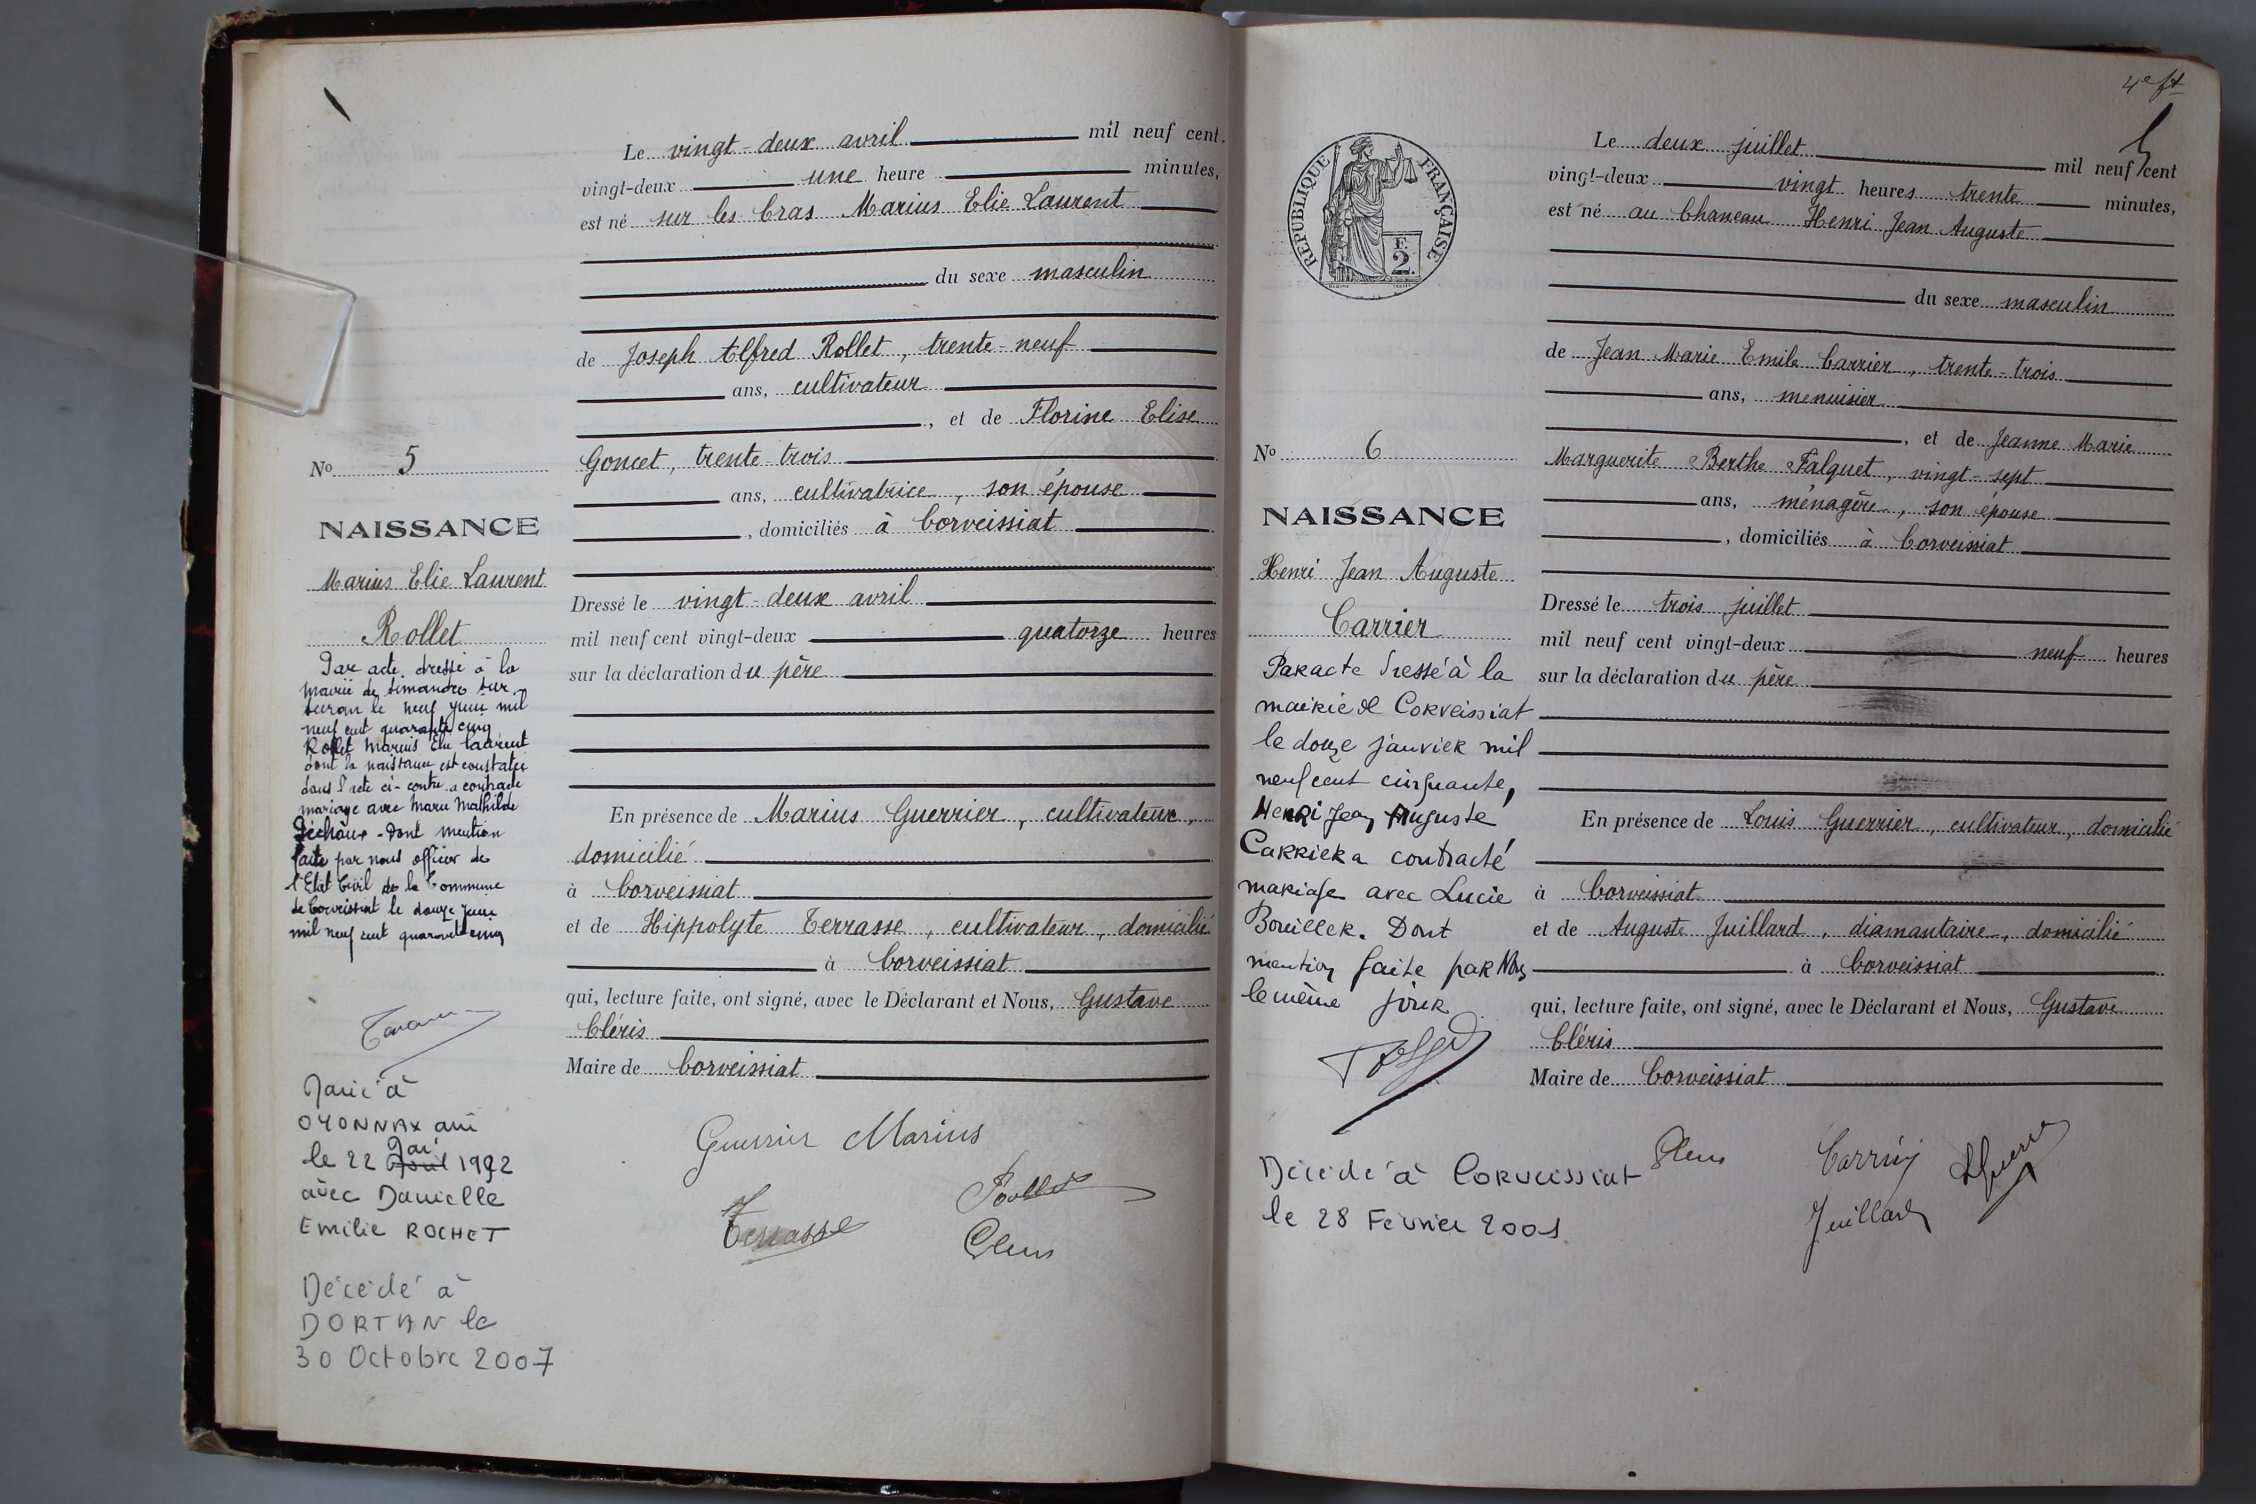 Le vingt-deux avril mil neuf cent
vingt-deux une heure minutes,
est né sur les Cras Marius Elie Laurent
du sexe masculin
de Joseph Alfred Rollet, trente-neuf
ans, cultivateur
, et de Florine Elise
Goncet, trente-trois
ans, cultivatrice, son épouse
, domiciliés à Corveissiat
Dressé le vingt-deux avril
mil neuf cent vingt-deux quatorze heures
sur la déclaration du père
En présence de Marius Guerrier, cultivateur,
domicilié
à Corveissiat
et de Hippolyte Terrasse, cultivateur, domicilié
à Corveissiat
qui, lecture faite, ont signé, avec le Déclarant et Nous, Gustave
Cléris
Maire de Corveissiat
Guerrier Marius
Rollet
Terrasse
Cléris
No 5
NAISSANCE
Marius Elie Laurent
Rollet
Par acte dressé à la
mairie de Simandre sur
Suran le neuf juin mil
neuf cent quarante cinq
Rollet Marius Elie Laurent
dont la naissance est constatée
dans l'acte ci-contre a contracté
mariage avec Marie Mathilde
Déchaux - Dont mention
faite par nous officier de
l'Etat Civil de la Commune
de Corveissiat le douze juin
mil neuf cent quarante cinq
Marié à
OYONNAX ain
le 22 Avril Mai 1992
avec Danielle
Emilie ROCHET
Décédé à
DORTAN le
30 Octobre 2007
4e ft
REPUBLIQUE FRANÇAISE
F.
2.
Le deux juillet mil neuf cent
vingt-deux vingt heures trente minutes,
est né au Chaneau Henri Jean Auguste
du sexe masculin
de Jean Marie Emile Carrier, trente-trois
ans, menuisier
, et de Jeanne Marie
Marguerite Berthe Falquet, vingt-sept
ans, ménagère, son épouse
, domiciliés à Corveissiat
Dressé le trois juillet
mil neuf cent vingt-deux neuf heures
sur la déclaration du père
En présence de Louis Guerrier, cultivateur, domicilié
à Corveissiat
et de Auguste Juillard, diamantaire, domicilié
à Corveissiat
qui, lecture faite, ont signé, avec le Déclarant et Nous, Gustave
Cléris
Maire de Corveissiat
Cléris Carrier LGuerrier
Juillard
No 6
NAISSANCE
Henri Jean Auguste
Carrier
Par acte dressé à la
mairie de Corveissiat
le douze janvier mil
neuf cent cinquante,
Henri Jean Auguste
Carrier a contracté
mariage avec Lucie
Bouiller. Dont
mention faite par Nous
le même jour
Décédé à Corveissiat
le 28 Février 2001.